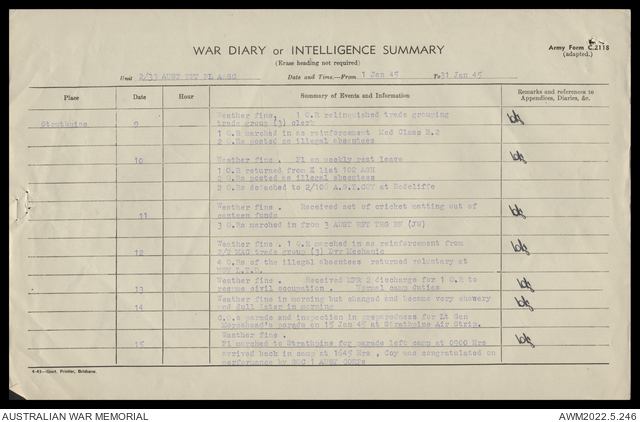 Army Form C.2118
(adapted.)
WAR DIARY or INTELLIGENCE SUMMARY
(Erase heading not required)
Unit 2/33 AUST PL AASC Date and Time.—From 1 Jan 45 To 31 Jan 45
Place Date Hour Summary of Events and Information Remarks and references to
Appendices, Diaries, &c.
Weather fine. 1 O.R relinquished trade grouping
Strathpine 9 trade group (3) clerk
1 O.R marched in as reinforcement Med Class B.2
2 O.Rs posted as illegal absentees
10 Weather fine. Pl on weekly rest leave
1 O.R returned from X list 102 AGH
2 O.Rs posted as illegal absentees
2 O.Rs detached to 2/108 A.G.T.COY at Redcliffe
Weather fine. Received set of cricket matting out of
11 canteen funds
3 O.Rs marched in from 3 AUST TRG BN (JW)
Weather fine. 1 O.R marched in as reinforcement from
12 trade group (3) Dvr Mechanic
4 O.Rs of the illegal absentees returned voluntary at
Weather fine. Received discharge for 1 O.R to
13 resume civil occupation. Normal camp duties
Weather fine in morning but changed and became very showery
14 and dull later in morning
C.O.s parade and inspection in preparedness for Lt Gen
Morsehead's parade on 15 Jan 45 at Strathpine Air Strip.
Weather fine.
15 Pl marched to Strathpine for parade left camp at 0900 Hrs
arrived back in camp at 1645 Hrs, Coy was congratulated on
performance by GOC 1 AUST CORPS
4-43—Govt. Printer, Brisbane.
AUSTRALIAN WAR MEMORIAL AWM2022.5.246